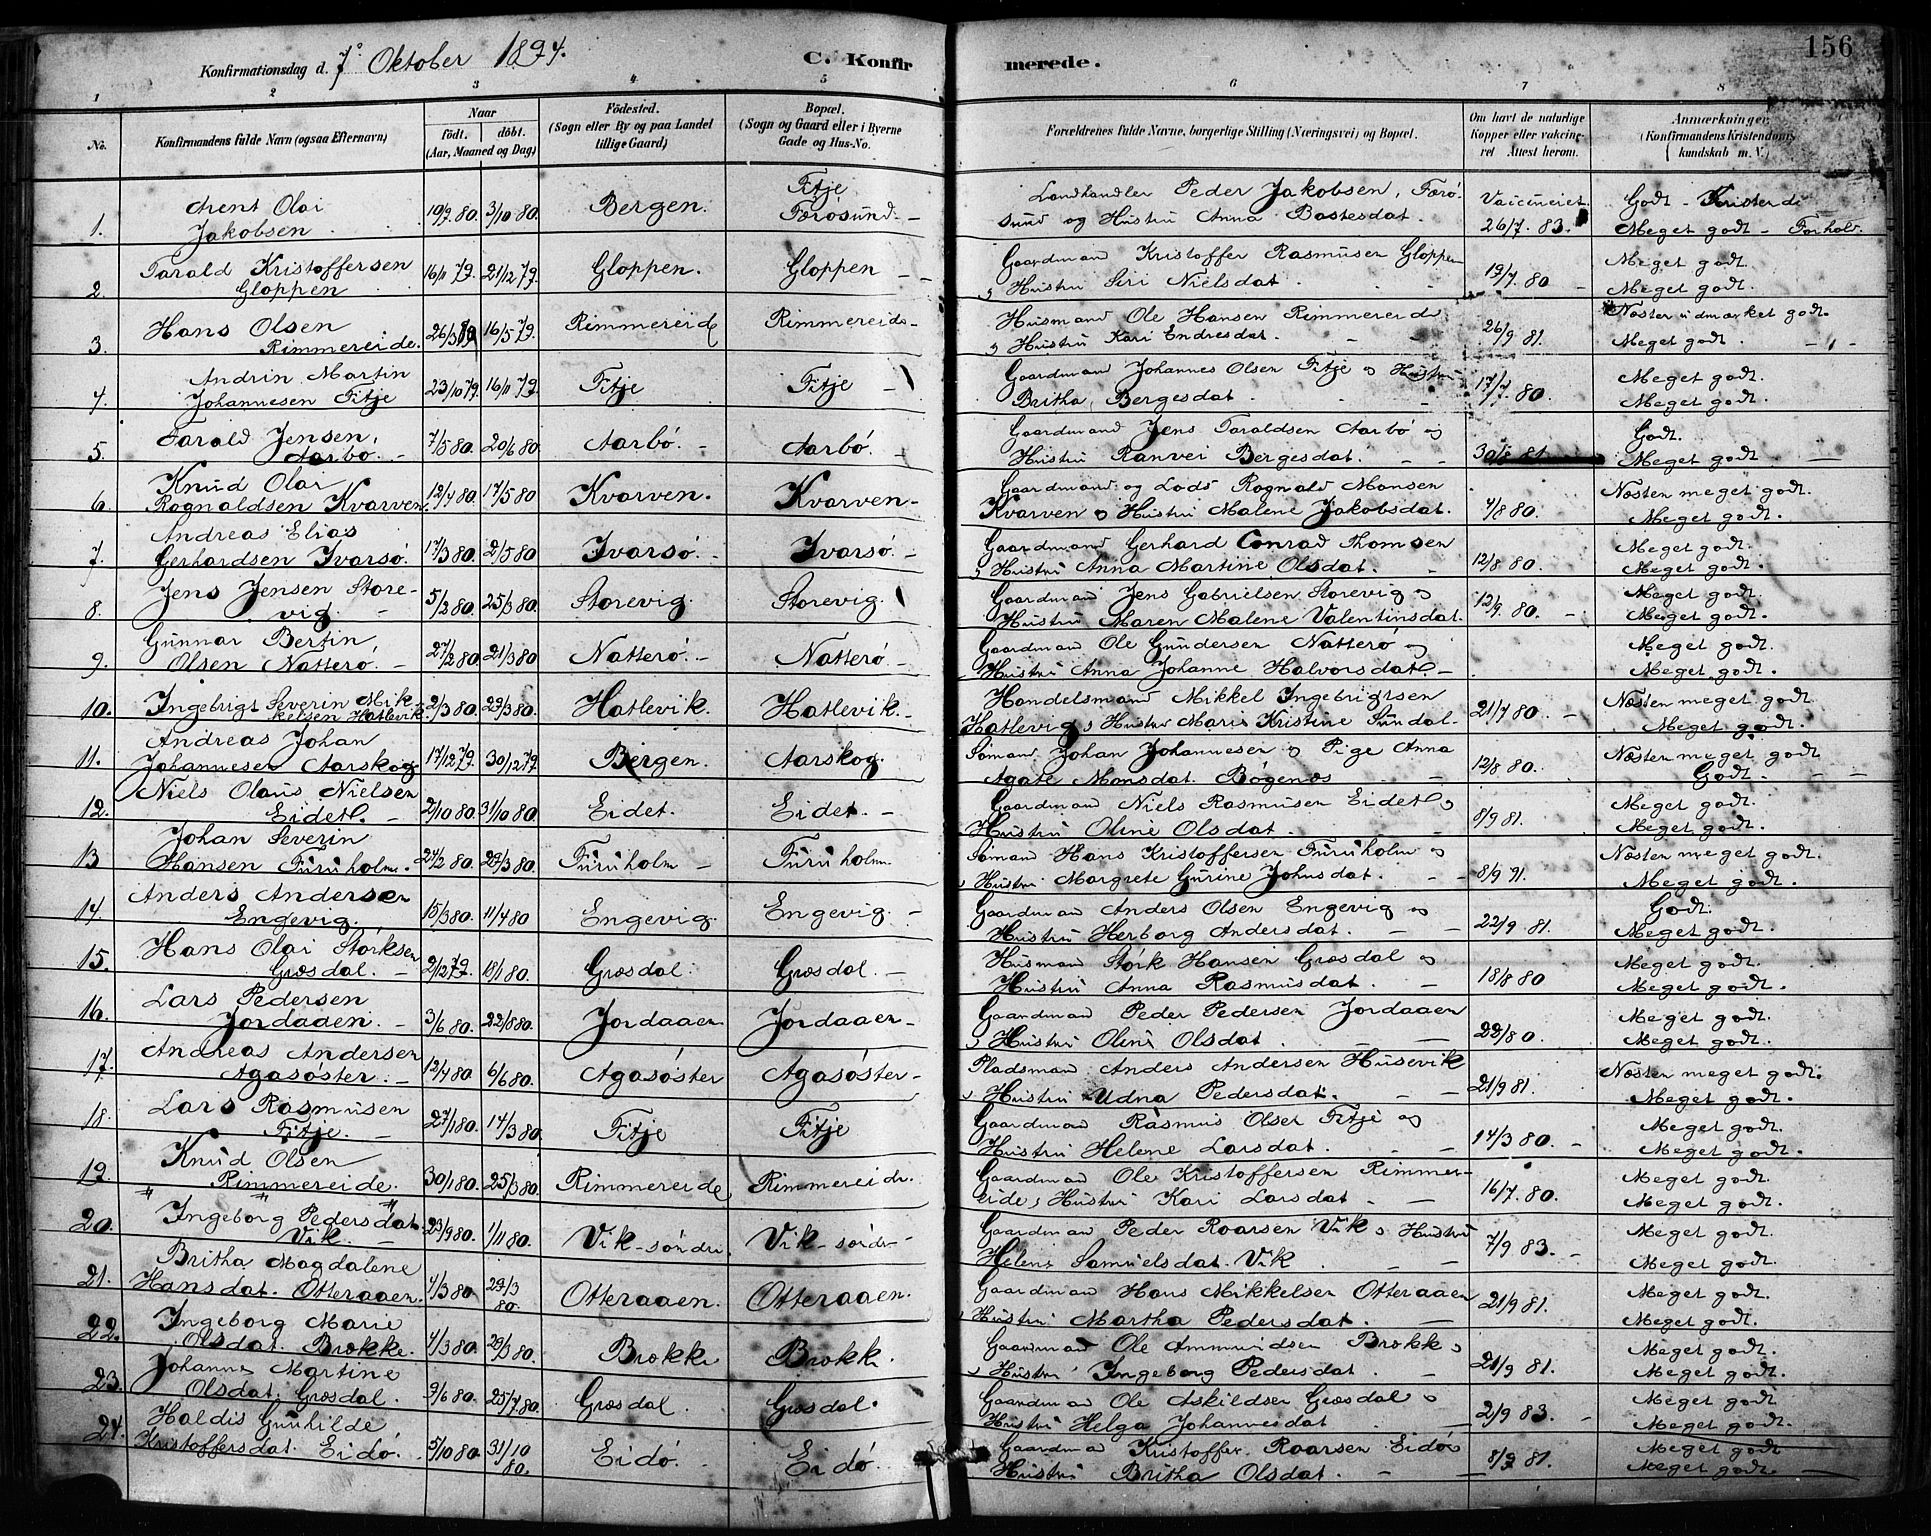 156
Konfirmationsdag d. 7de Oktober 1894. C. Konfirmerede.
1 2 3 4 5 6 7 8
No. Konfirmandens fulde Navn (ogsaa Efternavn) Naar født. døbt. (Aar, Maaned og Dag) Fødested. (Sogn eller By og paa Landet tillige Gaard) Bopæl. (Sogn og Gaard eller i Byerne Gade og Hus-No. Forældrenes fulde Navne, borgerlige Stilling (Næringsvei) og Bopæl. Om havt de naturlige Kopper eller vakcineret. Attest herom. Anmærkninger (Konfirmandens Kristendomskundskab m. V.)
1. Arent Olai Jakobsen 10/9 80. 3/10 80. Bergen. Fitje Færøsund. Landhandler Peder Jakobsen, Færøsund og Hustru Anna Bastesdat. Vaccineret 26/7. 83. Godt - Kristendi Meget godt - Forhold.
2. Tarald Kristoffersen Gloppen 16/11 79. 21/12 79. Gloppen. Gloppen Gaardmand Kristoffer Rasmusen Gloppen og Hustru Siri Nielsdat. 19/7. 80 Meget godt. Meget godt.
3. Hans Olsen Rimmereide. 26/3 79 16/5 79. Rimmereide Rimmereide Husmand Ole Hansen Rimmereide og Hustru Kari Endresdat. 26/9 81. Næsten udmærket godt. Meget godt.
4. Andrin Martin Johannesen Fitje 23/10 79. 16/11 79. Fitje Fitje Gaardmand Johannes Olsen Fitje og Hustru Britha Bergesdat. 17/7. 80. Meget godt. Meget godt.
5. Tarald Jensen, Aarbø. 7/5 80. 20/6 80 Aarbø. Aarbø. Gaardmand Jens Taraldsen Aarbø og Hustru Ranvei Bergesdat. 30/8 81 Godt. Meget godt
6. Knud Olai Ragnaldsen Kvarven. 12/4 80. 17/5 80 Kvarven. Kvarven Gaardmand og Lods Ragnald Monsen Kvarven og Hustru Malene Jakobsdat. 4/8 80. Næsten meget godt. Meget godt.
7. Andreas Elias Gerhardsen Ivarsø. 17/3 80. 2/5 80 Ivarsø. Ivarsø. Gaardmand Gerhard Conrad Thomsen og Hustru Anna Martine Olsdat. 12/8 80. Meget godt. Meget godt.
8. Jens Jensen Storevig. 5/2 80. 25/3 80. Storevig. Storevig. Gaardmand Jens Gabrielsen Storevig og Hustru Maren Malene Valentinsdat. 12/9. 80. Meget godt. Meget godt.
9. Gunnar Bertin Olsen Natterø. 27/2 80. 21/3 80 Natterø. Natterø Gaardmand Ole Gundersen Natterø og Hustru Anna Johanne Halvorsdat. Meget godt. Meget godt.
10. Ingebrigt Severin Mikkelsen Hatlevik 2/3 80. 29/3 80. Hatlevik. Hatlevik. Handelsmand Mikkel Ingebrigtsen Hatlevig og Hustru Maria Kristine Sundal 21/7 80. Næsten meget godt. Meget godt.
11. Andreas Johan Johannesen Aarskog. 17/12 79. 30/12 79. Bergen. Aarskog. Sømand Johan Johannesen og Pige Anna Agate Monsdat. Bøgenæs 12/8 80. Næsten meget godt. Godt.
12. Niels Olaus Nielsen Eidet. 2/10 80. 31/10 80. Eidet Eidet Gaardmand Niels Rasmusen Eidet og Hustru Oline Olsdat. 8/9 81. Meget godt. Meget godt.
13 Johan Severin Hansen Furuholm. 24/2 80. 29/3 80. Furuholm Furuholm. Sømand Hans Kristoffersen Furuholm og Hustru Margrete Gurine Johnsdat. 8/9 91. Næsten meget godt. Meget godt.
14. Anders Andersen Engevig. 15/3 80. 11/4 80 Engevig. Engevig. Gaardmand Anders Olsen Engevig og Hustru Herborg Andersdat. 22/9 81. Godt. Meget godt.
15. Hans Olai Størksen Græsdal. 2/12 79. 18/1 80. Græsdal. Græsdal. Husmand Størk Hansen Græsdal og Hustru Anna Rasmusdat. 18/8 80 Meget godt. Meget godt.
16. Lars Pedersen Jordaaen. 3/6 80. 22/8 80. Jordaaen Jordaaen Gaardmand Peder Pedersen Jordaaen og Hustru Oline Olsdat. Meget godt. Meget godt.
17. Andreas Andersen Agasøster. 12/4 80 6/6 80. Agasøster Agasøster Pladsmand Anders Andersen Husevik og Hustru Udna Pedersdat. 21/9 81. Næsten meget godt. Meget godt.
18. Lars Rasmusen Fitje. 27/1 80. 14/3 80. Fitje Fitje Gaardmand Rasmus Olsen Fitje og Hustru Helene Larsdat. 14/3 80. Meget godt. Meget godt.
19. Knud Olsen Rimmereide. 30/1 80. 25/3 80. Rimmereide Rimmereide. Gaardmand Ole Kristoffersen Rimmereide og Hustru Kari Larsdat 16/7. 80. Meget godt. Meget godt.
20. Ingeborg Pedersdat. Vik 23/9 80. 1/11 80. Vik-søndre. Vik-søndre Gaardmand Peder Roarsen Vik og Hustru Helene Samuelsdat. Vik 7/9 83. Meget godt. Meget godt.
21. Britha Magdalene Hansdat. Otteraaen. 4/3 80. 29/3 80. Otteraaen. Otteraaen. Gaardmand Hans Mikkelsen Otteraaen og Hustru Martha Pedersdat. 21/9 81. Meget godt. Meget godt.
22. Ingeborg Marie Olsdat. Brække. 4/3 80. 29/3 80. Brække Brække. Gaardmand Ole Ammundsen Brække og Hustru Ingeborg Pedersdat. 21/9 81. Meget godt. Meget godt.
23. Johanne Martine Olsdat. Græsdal. 9/6 80. 25/7 80. Græsdal. Græsdal. Gaardmand Ole Askildsen Græsdal og Hustru Helga Johannesdat 2/9 83. Meget godt. Meget godt.
24. Haldis Gunhilde Kristoffersdat. Eidø. 5/10 80. 31/10 80. Eidø. Eidø. Gaardmand Kristoffer Roarsen Eidø og Hustru Britha Olsdat. 8/9 81. Meget godt Meget godt.